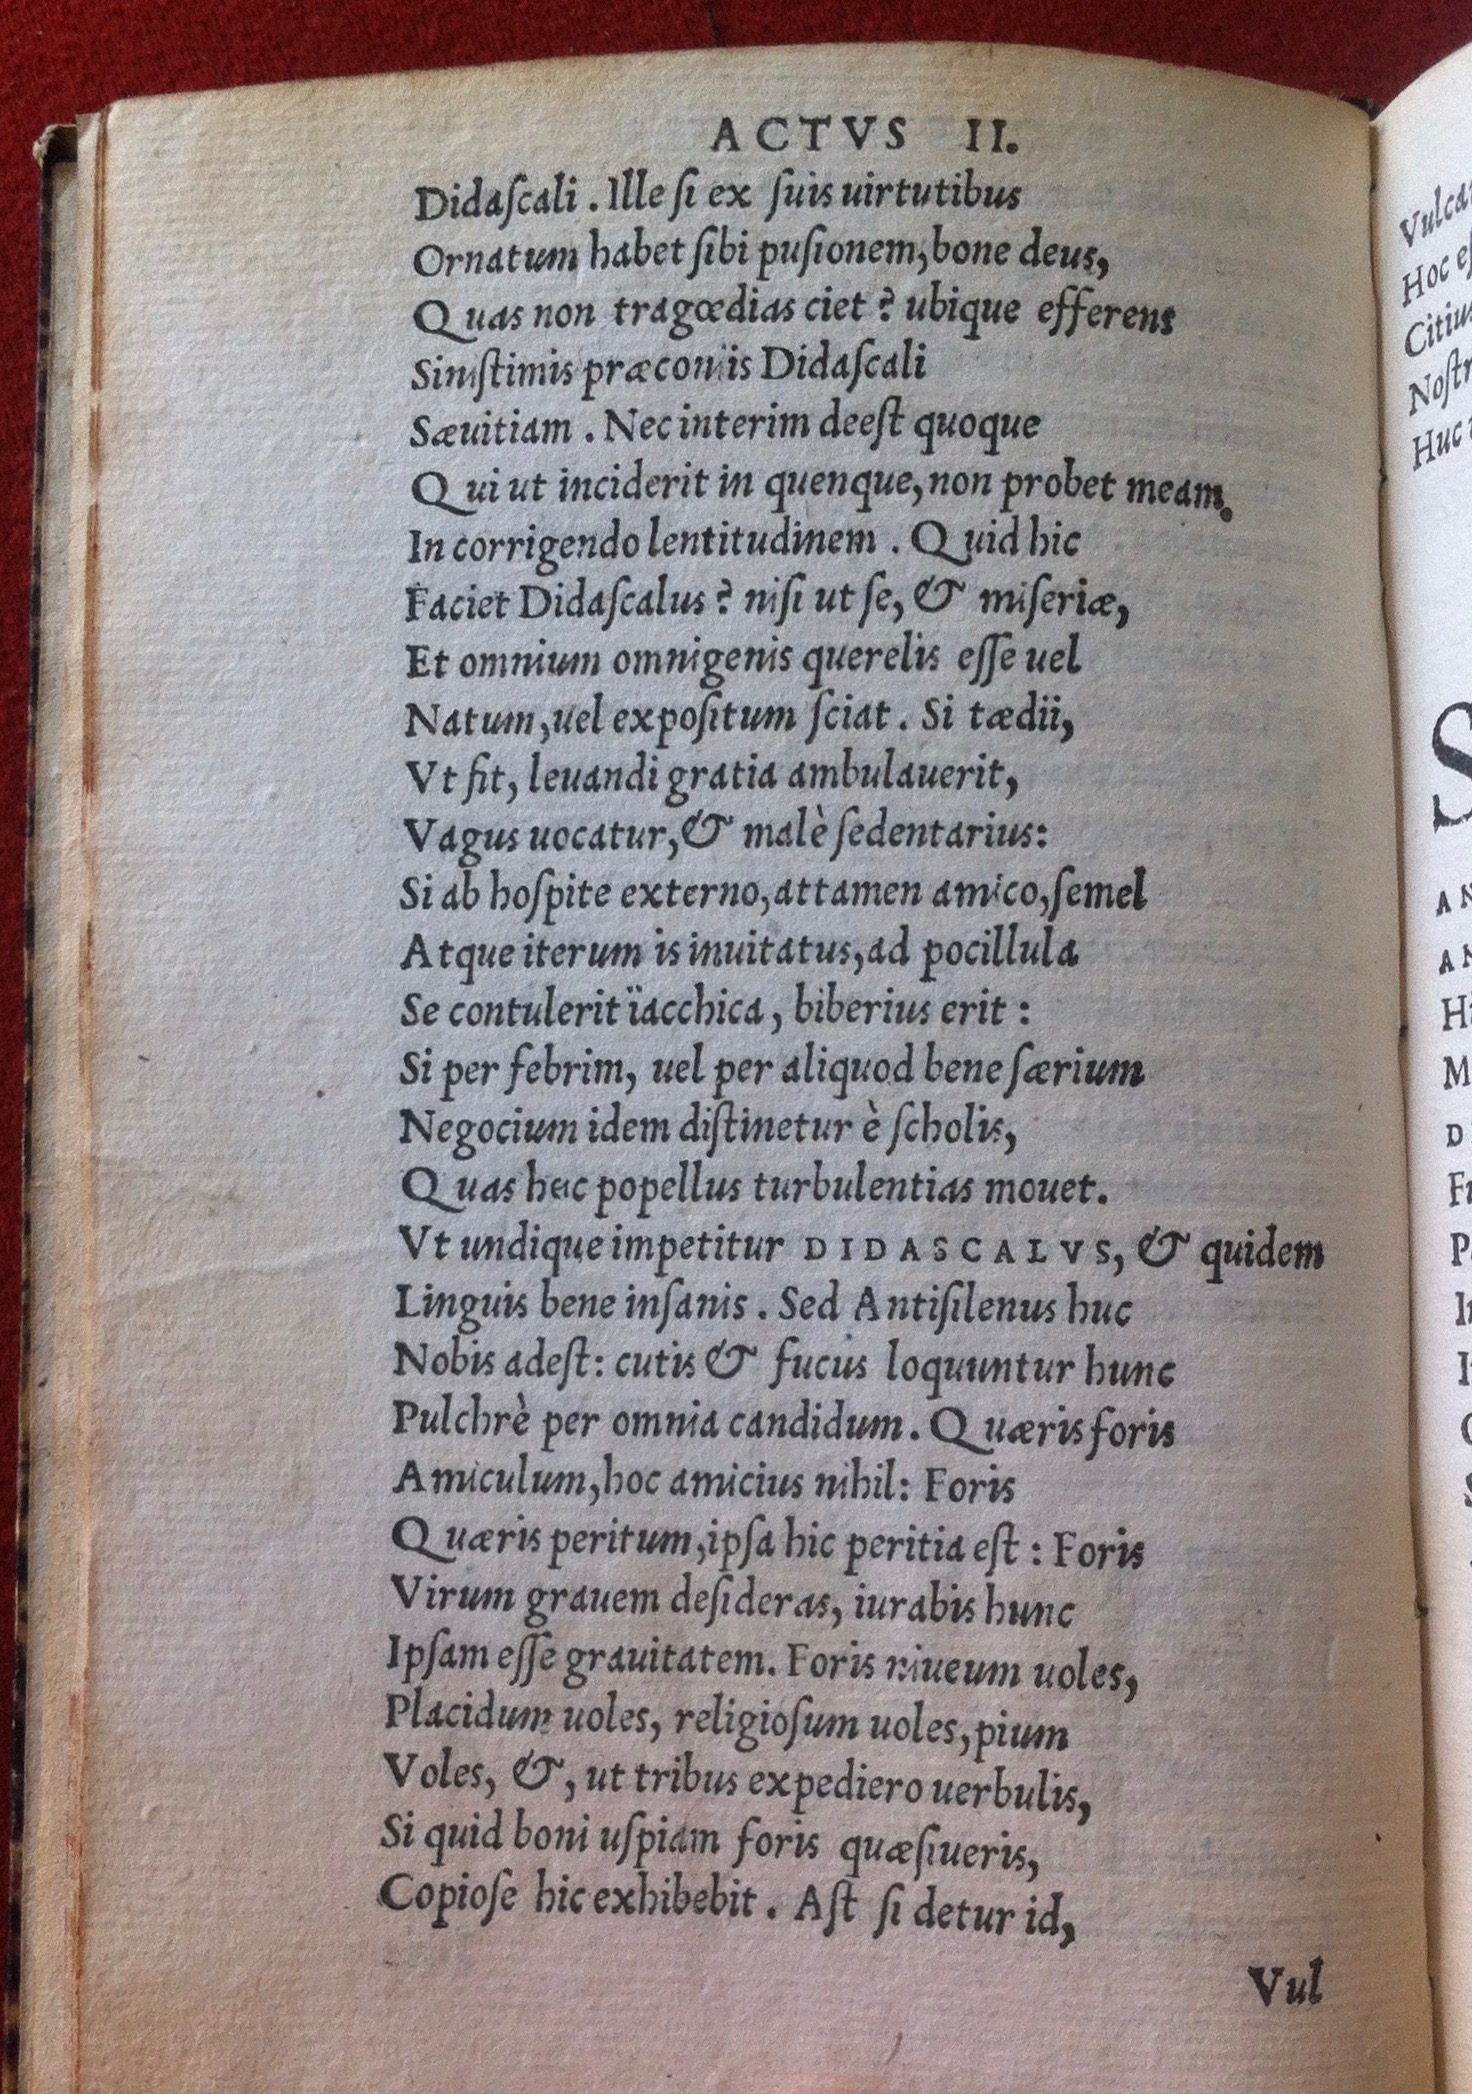 ACTVS II.
Didaſcali. Ille ſi ex ſuis uirtutibus
Ornatum habet ſibi puſionem, bone deus,
Quas non tragœdias ciet? ubique efferens
Siniſtimis præconiis Didaſcali
Sæuitiam. Nec interim deeſt quoque
Qui ut inciderit in quenque, non probet meam.
In corrigendo lentitudinem. Quid hic
Faciet Didaſcalus? niſi ut ſe, & miſeriæ,
Et omnium omnigenis querelis eſſe uel
Natum, uel expoſitum ſciat. Si tædii,
Vt fit, leuandi gratia ambulauerit,
Vagus uocatur, & malè ſedentarius:
Si ab hoſpite externo, attamen amico, ſemel
Atque iterum is inuitatus, ad pocillula
Se contulerit ïacchica, biberius erit:
Si per febrim, uel per aliquod bene ſærium
Negocium idem diſtinetur è ſcholis,
Quas huc popellus turbulentias mouet.
Vt undique impetitur DIDASCALVS, & quidem
Linguis bene inſanis. Sed Antiſilenus huc
Nobis adeſt: cutis & fucus loquuntur hunc
Pulchrè per omnia candidum. Quæris foris
Amiculum, hoc amicius nihil: Foris
Quæris peritum, ipſa hic peritia eſt: Foris
Virum grauem deſideras, iurabis hunc
Ipſam eſſe grauitatem. Foris niueum uoles,
Placidum uoles, religioſum uoles, pium
Voles, &, ut tribus expediero uerbulis,
Si quid boni uſpiam foris quæſiueris,
Copioſe hic exhibebit. Aſt ſi detur id,
Vul
Hoc